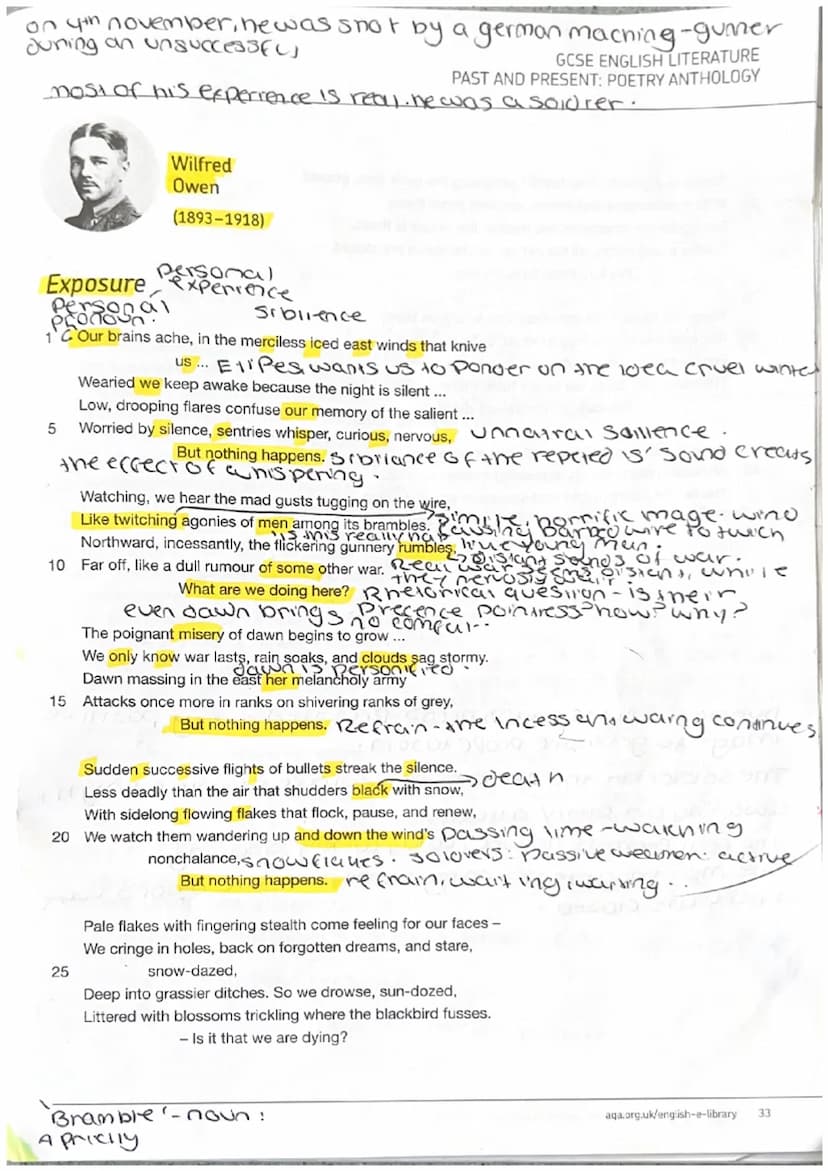 on 4th november, he was shot by a german maching-gunner
during an unsuccessful
GCSE ENGLISH LITERATURE
PAST AND PRESENT: POETRY ANTHOLOGY
most of his experience is real. he was a soldier.
Wilfred
Owen
(1893–1918)
Exposure
Personal
experience
Personal
pronoun.
siblience
1 Our brains ache, in the merciless iced east winds that knive
us ... Elipes, wants us to ponder on the idea cruel winter
Wearied we keep awake because the night is silent ...
Low, drooping flares confuse our memory of the salient ...
5 Worried by silence, sentries whisper, curious, nervous, unnatral sailence.
But nothing happens. sibriance of the repeted 's' sound creats
the effect of whispering.
Watching, we hear the mad gusts tugging on the wire,
Like twitching agonies of men among its brambles. simile, horrific image. wind
causing barbed wire to twich
Northward, incessantly, the flickering gunnery rumbles, like young men.
distant sounds of war.
10 Far off, like a dull rumour of some other war. Real war seems distant, while
they nervosly
What are we doing here? Rhetorical question - is their
Precence pointress? how? why?
even dawn brings
no comfort..
The poignant misery of dawn begins to grow ...
We only know war lasts, rain soaks, and clouds sag stormy.
dawn is personified.
Dawn massing in the east her melancholy army
15 Attacks once more in ranks on shivering ranks of grey,
But nothing happens. Refrain - the incessant waiting continues
Sudden successive flights of bullets streak the silence.
Less deadly than the air that shudders black with snow, death
With sidelong flowing flakes that flock, pause, and renew,
20 We watch them wandering up and down the wind's passing time - watching
nonchalance, snowflakes. soldiers: passive weather: active
But nothing happens. refrain, waiting, waiting..
Pale flakes with fingering stealth come feeling for our faces –
We cringe in holes, back on forgotten dreams, and stare,
25 snow-dazed,
Deep into grassier ditches. So we drowse, sun-dozed,
Littered with blossoms trickling where the blackbird fusses.
– Is it that we are dying?
'Bramble' - noun:
A prickly
aqa.org.uk/english-e-library 33